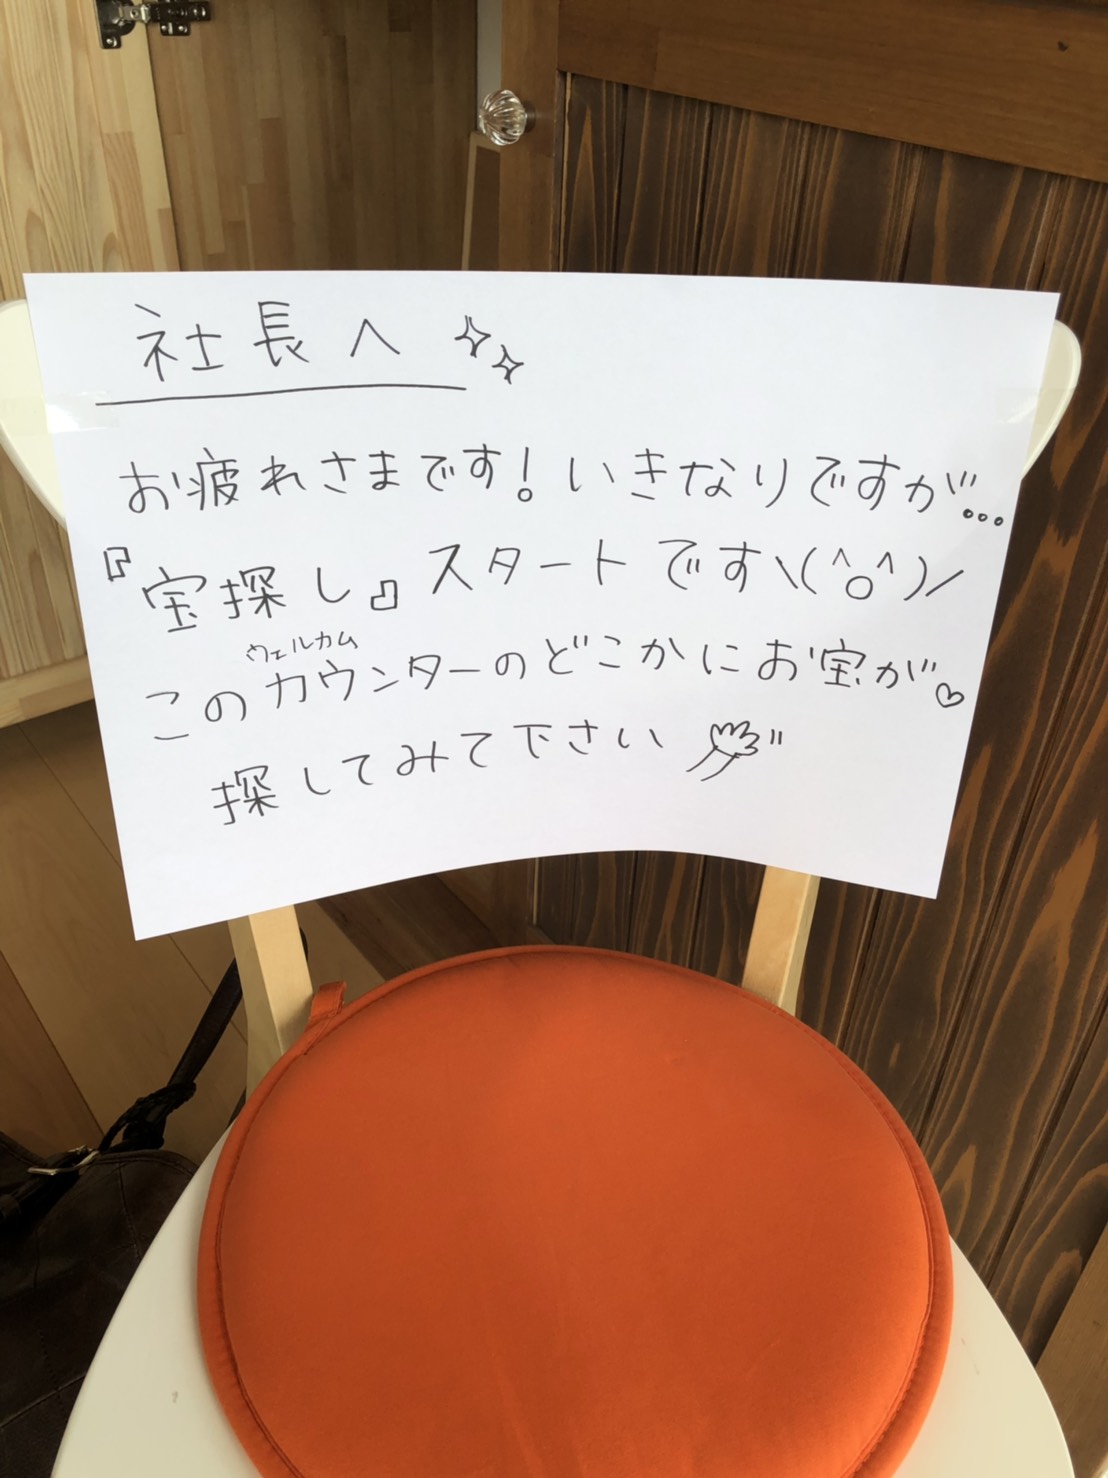 社長へ
お疲れさまです!いきなりですが...
『宝探し』スタートです\(^o^)/
ウェルカム
このカウンターのどこかにお宝が♡
探してみて下さい